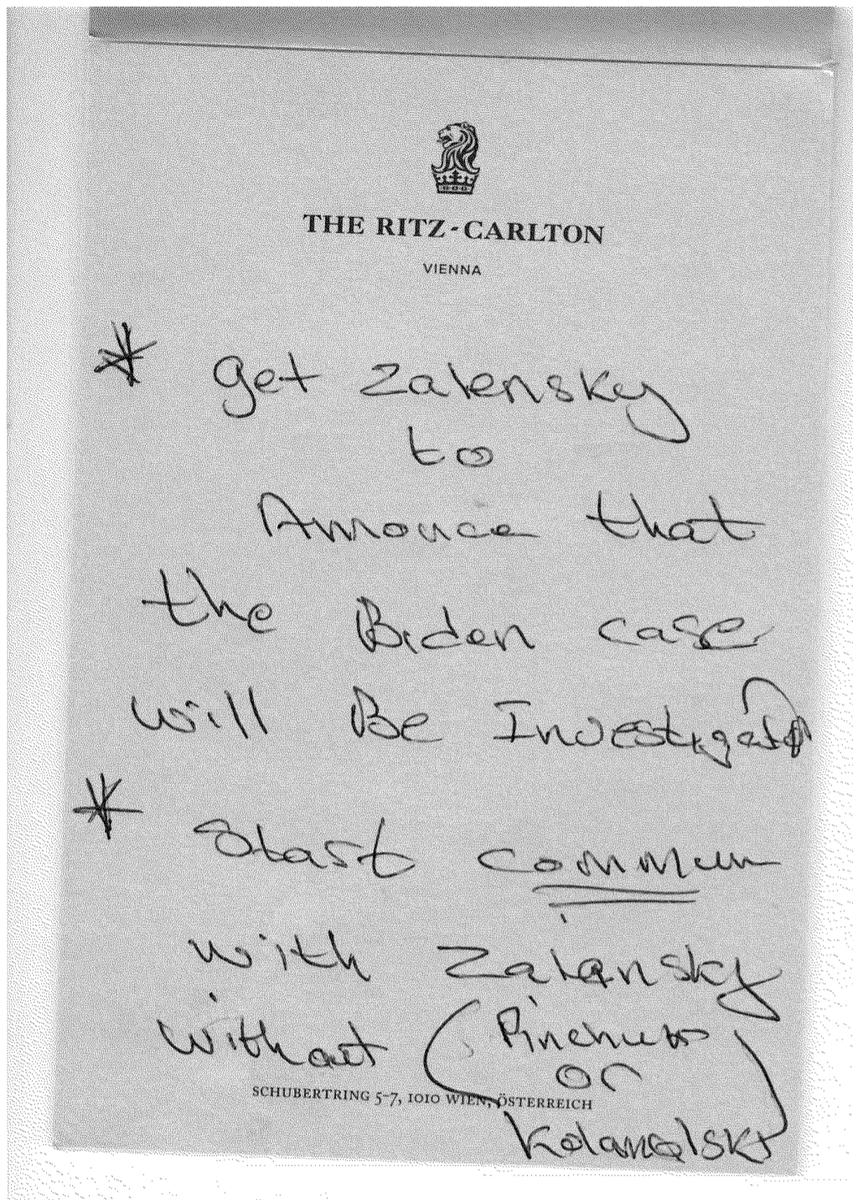 THE RITZ-CARLTON
VIENNA
* get Zalensky
to
Annouce that
the Biden case
will Be Investigated
* start commun
with Zalensky
without (Pinchuk
or
SCHUBERTRING 5-7, 1010 WIEN, ÖSTERREICH
Kolamolski)